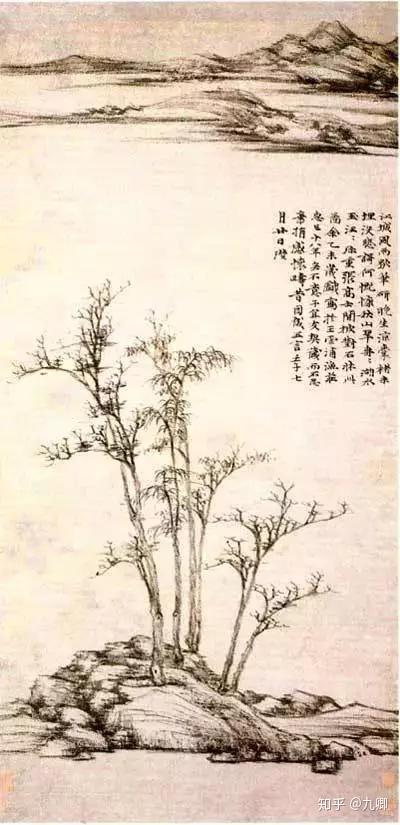 江城風雨歇筆研晚生涼囊楮未
埋沒悲謌何慨慷秋山翠冉〻湖水
玉汪〻珎重張高士閒披對石牀此
圖余乙未歲戲寫於王雲浦漁莊
忽已十八年矣不意子宜友契藏而不忘
棄捐感懷疇昔因成五言壬子七
月廿日瓚
知乎 @九卿